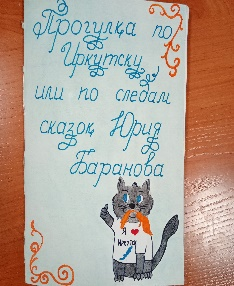 Прогулка по
Иркутску
или по следам
сказок Юрия
Баранова
Я ❤